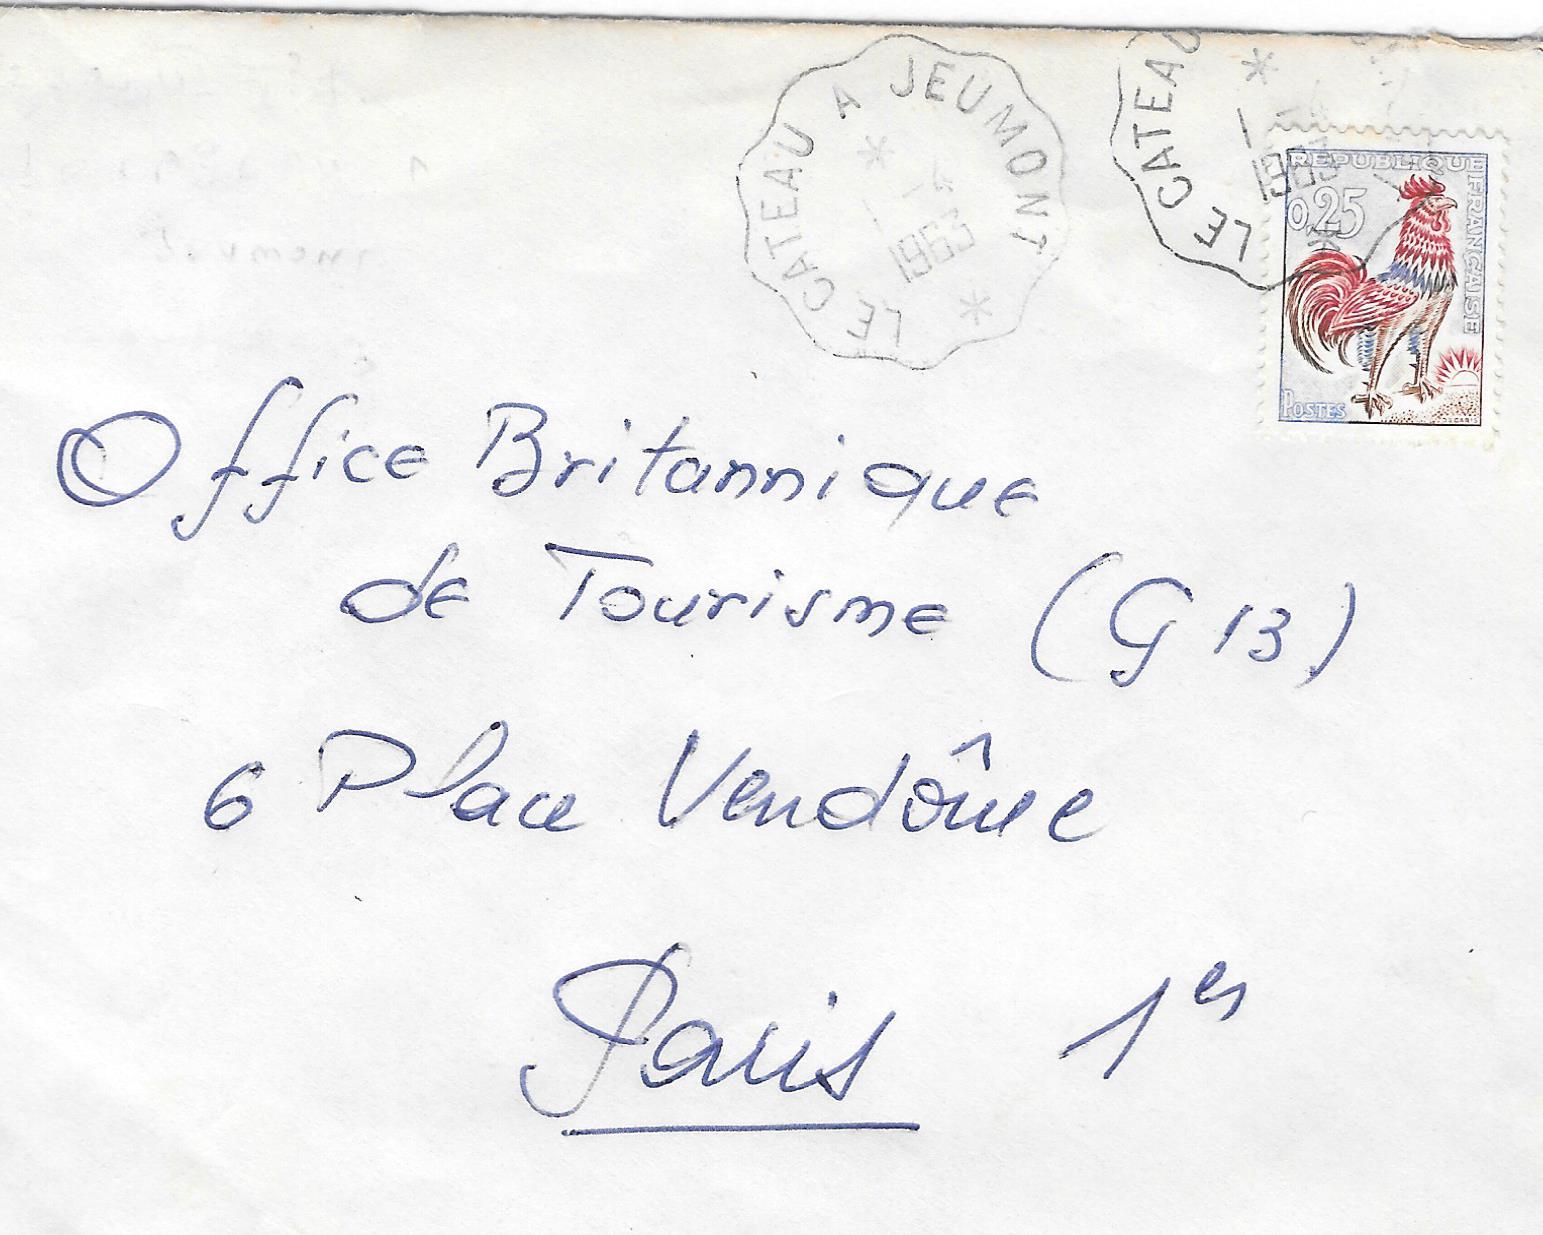 LE CATEAU A JEUMONT
1963
LE CATEAU
1963
REPUBLIQUE
FRANÇAISE
0,25
POSTES
DECARIS
Office Britannique
de Tourisme (G 13)
6 Place Vendôme
Paris 1er